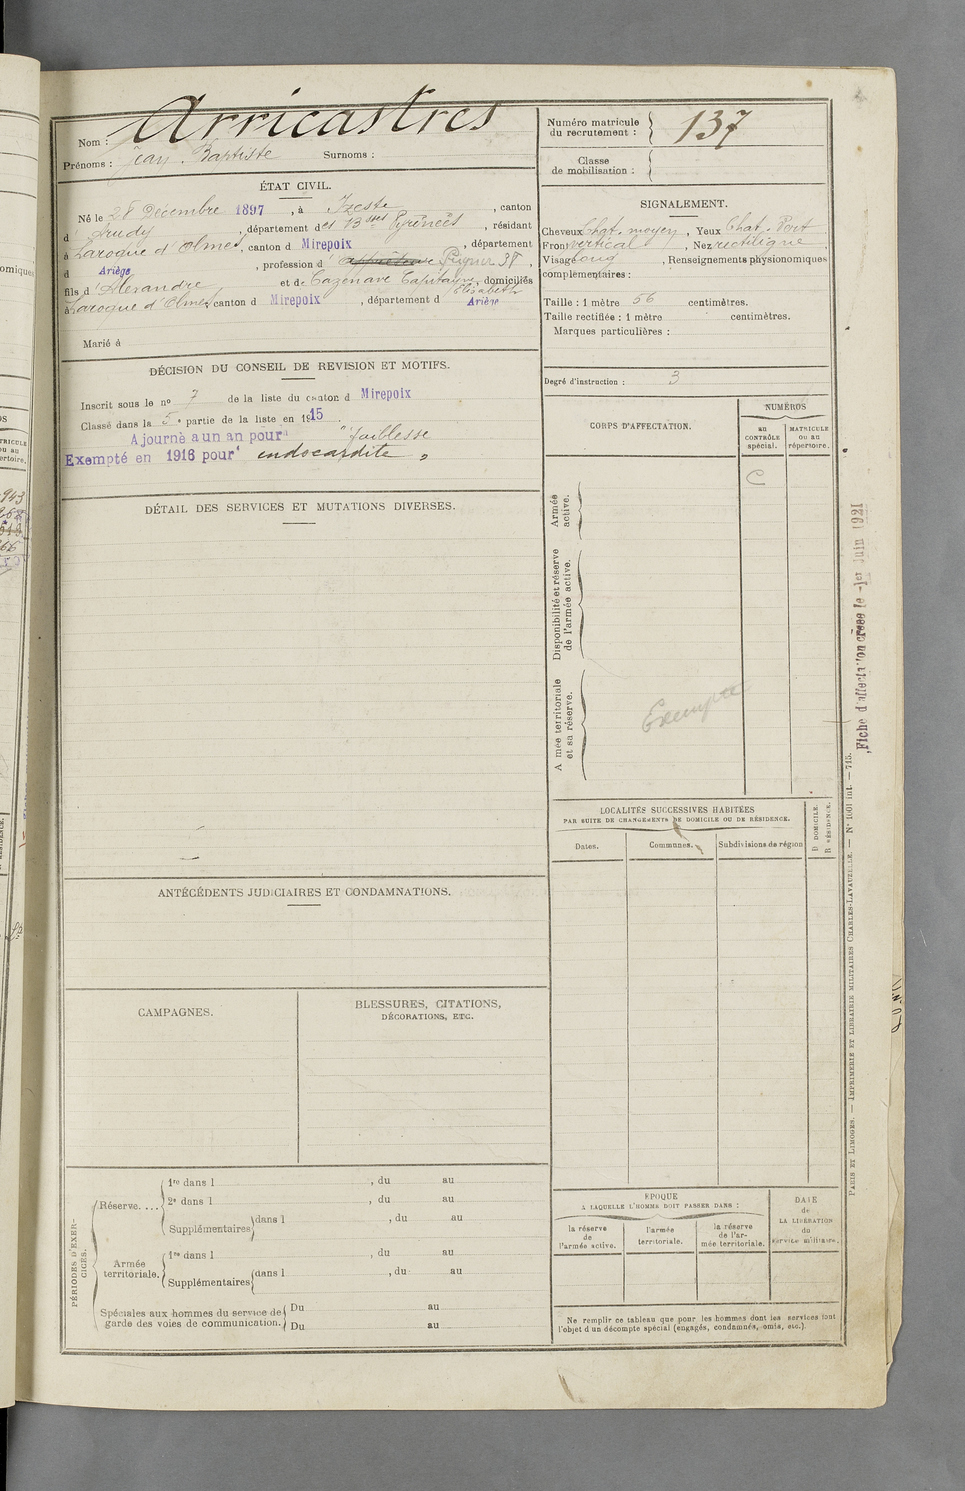 Nom : Arricastres
Prénoms : Jean-Baptiste Surnoms :
Numéro matricule du recrutement : 137
Classe de mobilisation :
ÉTAT CIVIL.
Né le 28 Décembre 1897, à Izeste, canton
d'Arudy, département des Bses Pyrénées, résidant
à Laroque d'Olmes, canton d Mirepoix, département
d Ariège, profession d
fils d'Alexandre et de Cazenave Capitayne Elisabeth, domiciliés
à Laroque d'Olmes, canton d Mirepoix, département d Ariège
Marié à
SIGNALEMENT.
Cheveux chat. moyen, Yeux Chat.
Front vertical, Nez rectiligne
Visage long, Renseignements physionomiques
complémentaires :
Taille : 1 mètre 56 centimètres.
Taille rectifiée : 1 mètre centimètres.
Marques particulières :
Degré d'instruction : 3
DÉCISION DU CONSEIL DE REVISION ET MOTIFS.
Inscrit sous le no 7 de la liste du canton d Mirepoix
Classé dans la 5e partie de la liste en 1915
Ajourné a un an pour "faiblesse
Exempté en 1916 pour endocardite "
DÉTAIL DES SERVICES ET MUTATIONS DIVERSES.
CORPS D'AFFECTATION.
NUMÉROS
au CONTRÔLE spécial.
MATRICULE ou au répertoire.
C
Armée active.
Disponibilité et réserve de l'armée active.
Armée territoriale et sa réserve.
Exempté
Fiche d'affectation créée le 1er Juin 1921
LOCALITÉS SUCCESSIVES HABITÉES
PAR SUITE DE CHANGEMENTS DE DOMICILE OU DE RÉSIDENCE.
Dates.
Communes.
Subdivisions de région
D DOMICILE.
R RÉSIDENCE.
ANTÉCÉDENTS JUDICIAIRES ET CONDAMNATIONS.
CAMPAGNES.
BLESSURES, CITATIONS,
DÉCORATIONS, ETC.
PÉRIODES D'EXERCICES.
Réserve....
1re dans l , du au
2e dans l , du au
Supplémentaires dans l , du au
Armée territoriale.
1re dans l , du au
Supplémentaires dans l , du au
Spéciales aux hommes du service de garde des voies de communication.
Du au
Du au
ÉPOQUE
À LAQUELLE L'HOMME DOIT PASSER DANS :
la réserve de l'armée active.
l'armée territoriale.
la réserve de l'armée territoriale.
DATE
de
LA LIBÉRATION
du
service militaire.
Ne remplir ce tableau que pour les hommes dont les services font
l'objet d'un décompte spécial (engagés, condamnés, omis, etc.).
PARIS ET LIMOGES. — IMPRIMERIE ET LIBRAIRIE MILITAIRES CHARLES-LAVAUZELLE. — No 1001 int. — 715.